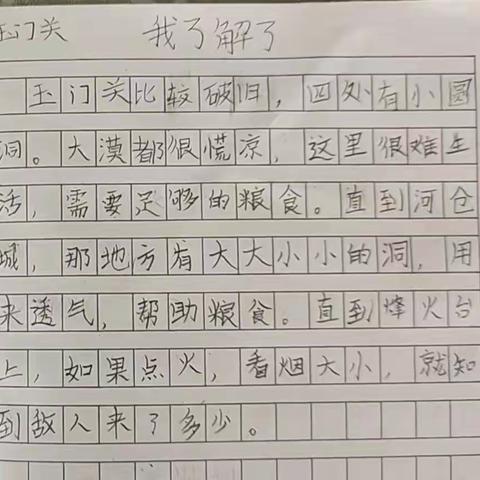 玉门关 我了解了
玉门关比较破旧，四处有小圆
洞。大漠都很慌凉，这里很难生
活，需要足够的粮食。直到河仓
城，那地方有大大小小的洞，用
来透气，帮助粮食。直到烽火台
上，如果点火，看烟大小，就知
到敌人来了多少。